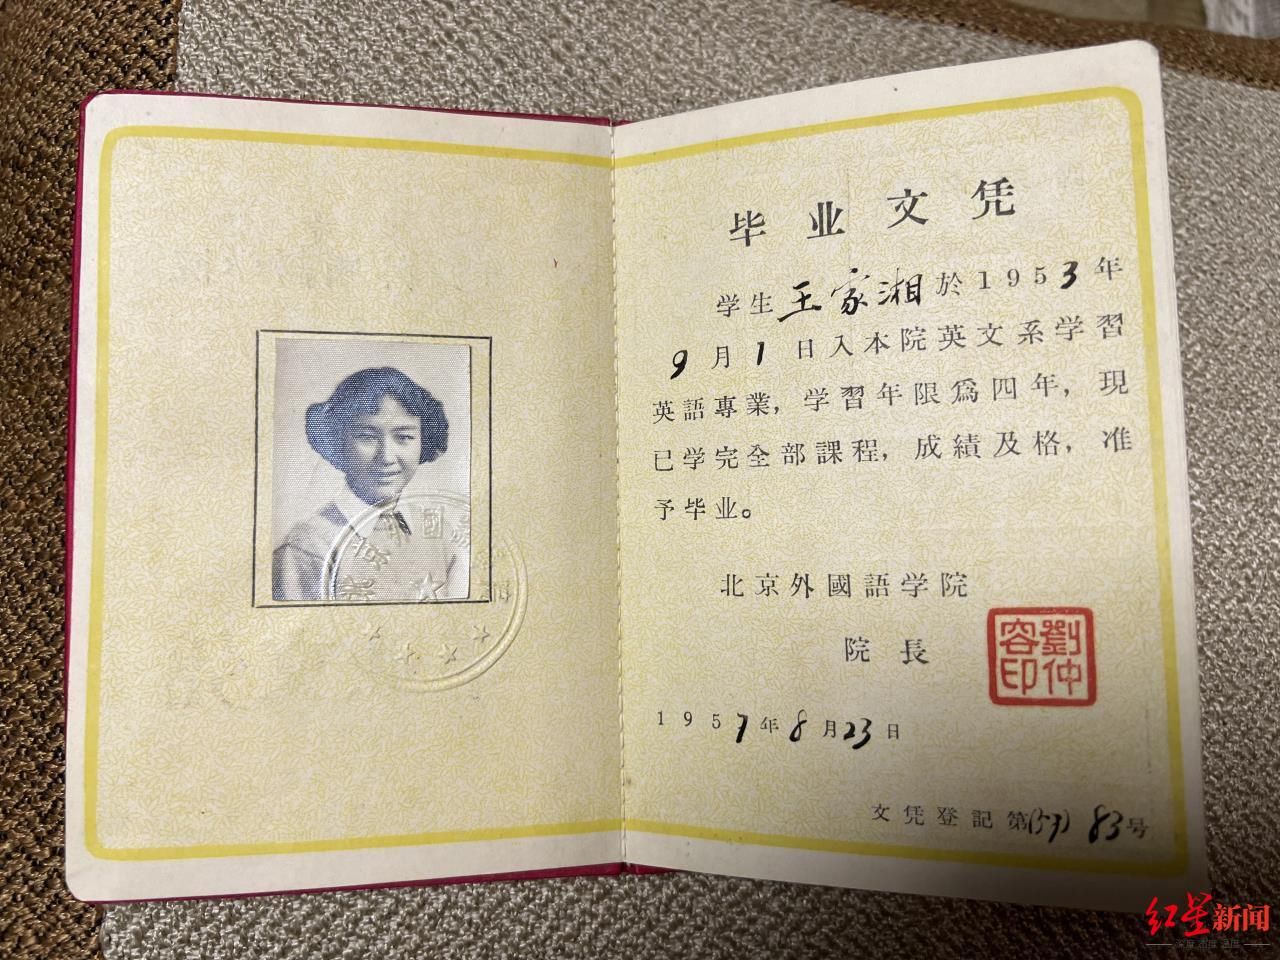 毕业文凭
学生王家湘於1953年
9月1日入本院英文系学習
英語專業，学習年限爲四年，現
已学完全部課程，成績及格，准
予毕业。
北京外國語学院
院長
劉仲
容印
1957年8月23日
文凭登記第(57)83号
红星新闻
深度 态度 速度